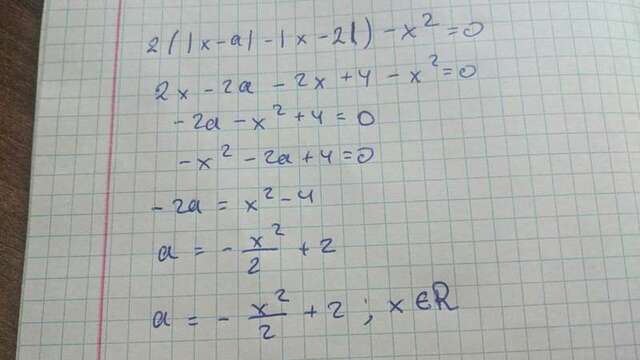 2(|x-a|-|x-2|)-x²=0
2x-2a-2x+4-x²=0
-2a-x²+4=0
-x²-2a+4=0
-2a=x²-4
a=-x²/2+2
a=-x²/2+2; x∈R